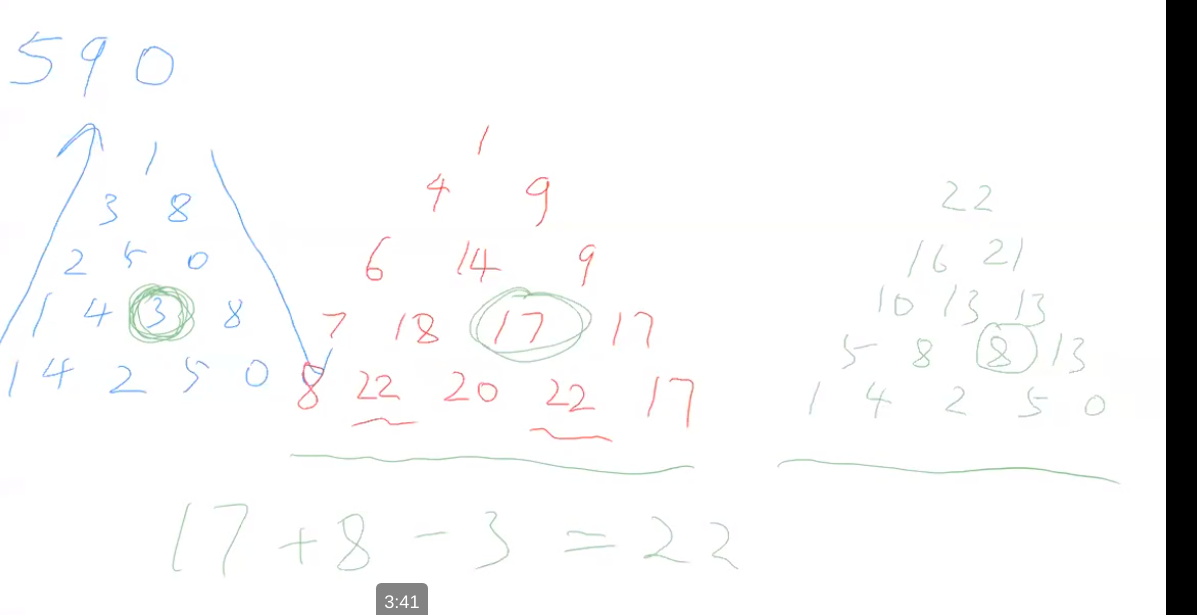 590
1
3 8
2 5 0
1 4 3 8
1 4 2 5 0
1
4 9
6 14 9
7 18 17 17
8 22 20 22 17
22
16 21
10 13 13
5 8 8 13
1 4 2 5 0
17 + 8 - 3 = 22
3:41